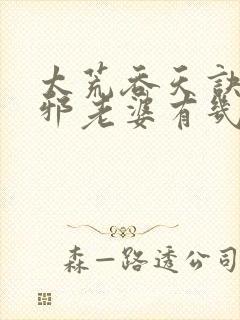 大荒吞天诀
邪老婆有几
森一路透公司